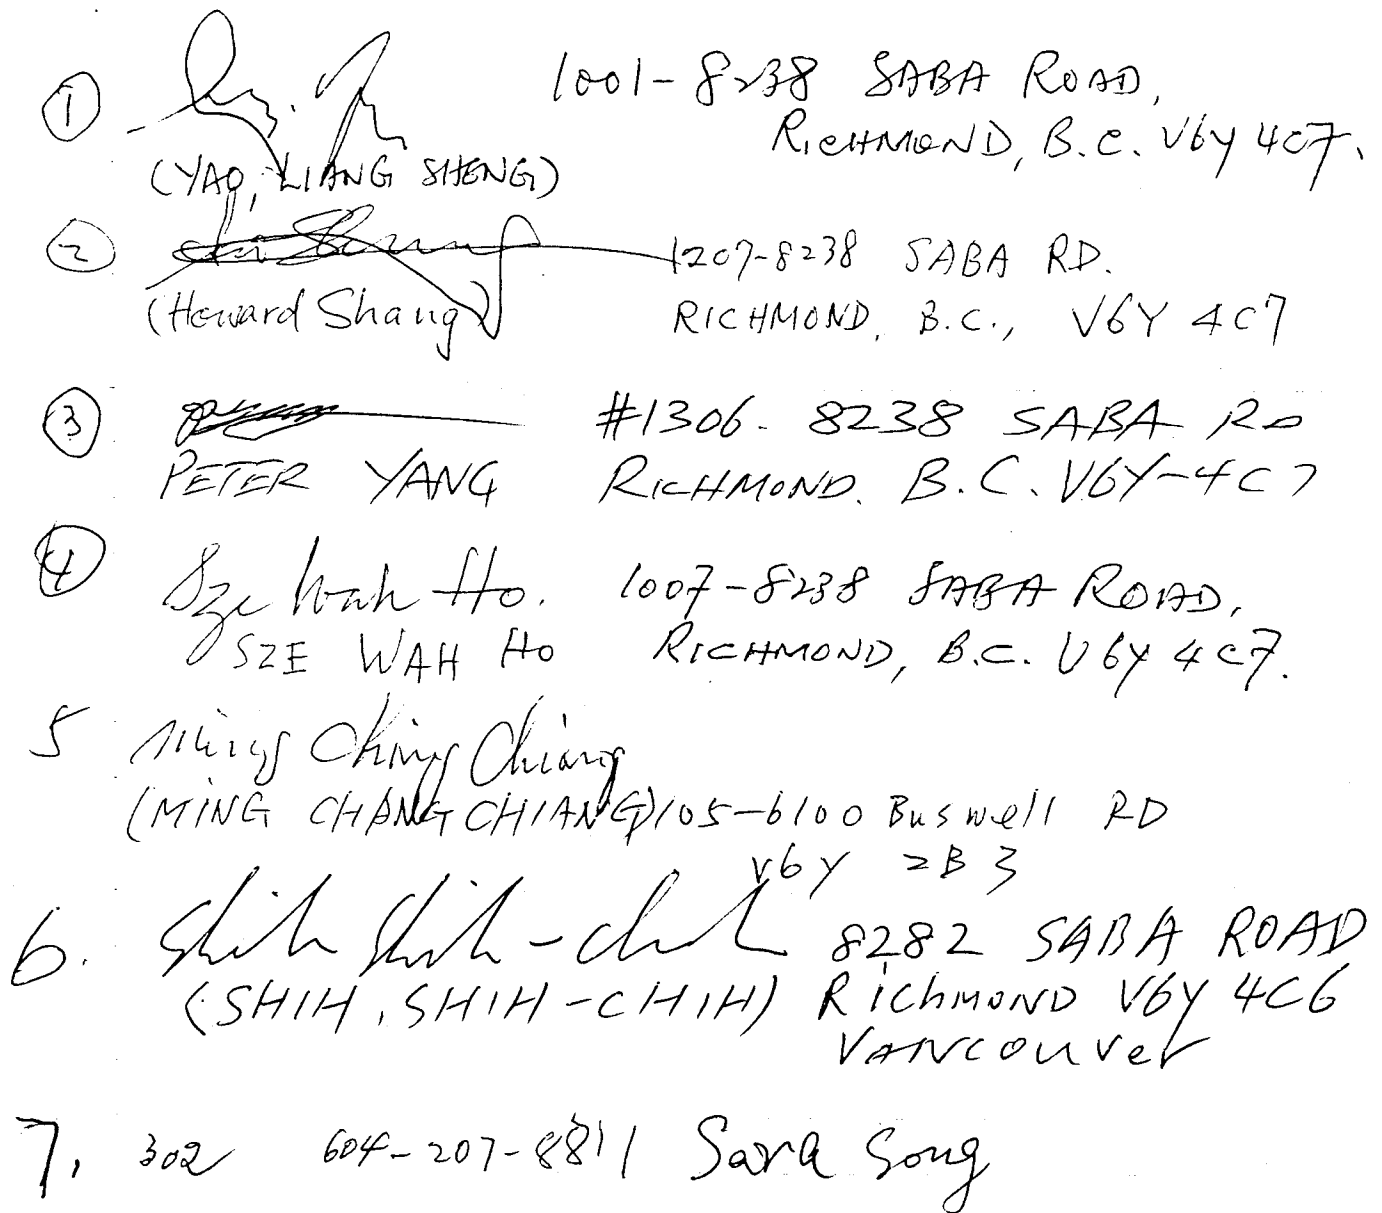 ① 1001-8238 SABA ROAD,
RICHMOND, B.C. V6Y 4C7.
(YAO, LIANG SHENG)
② 1207-8238 SABA RD.
(Howard Shang) RICHMOND, B.C., V6Y 4C7
③ #1306- 8238 SABA RD
PETER YANG RICHMOND. B.C. V6Y-4C7
④ Sze Wah Ho. 1007-8238 SABA ROAD,
SZE WAH HO RICHMOND, B.C. V6Y 4C7.
5 Ming Ching Chiang
(MING CHANG CHIANG) 105-6100 Buswell RD
V6Y 2B3
6. Shih Shih-chih 8282 SABA ROAD
(SHIH, SHIH-CHIH) RichMOND V6Y 4C6
VANCOUVer
7. 302 604-207-8811 Sara Song